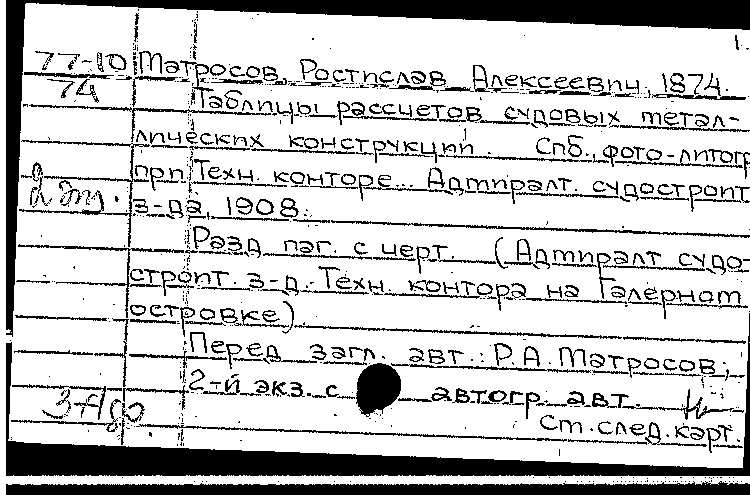 1.
77-10 Матросов, Ростислав Алексеевич, 1874.
74 Таблицы рассчетов судовых метал-
лических конструкций. Спб., фото-литогр
при Техн. конторе. Адмиралт. судостроит
2 эт. з-да, 1908.
Разд паг. с черт. (Адмиралт судо-
строит. з-д. Техн. контора на Галерном
островке)
Перед загл. авт.: Р.А. Матросов;
2-й экз. с автогр. авт.
См. след. карт.